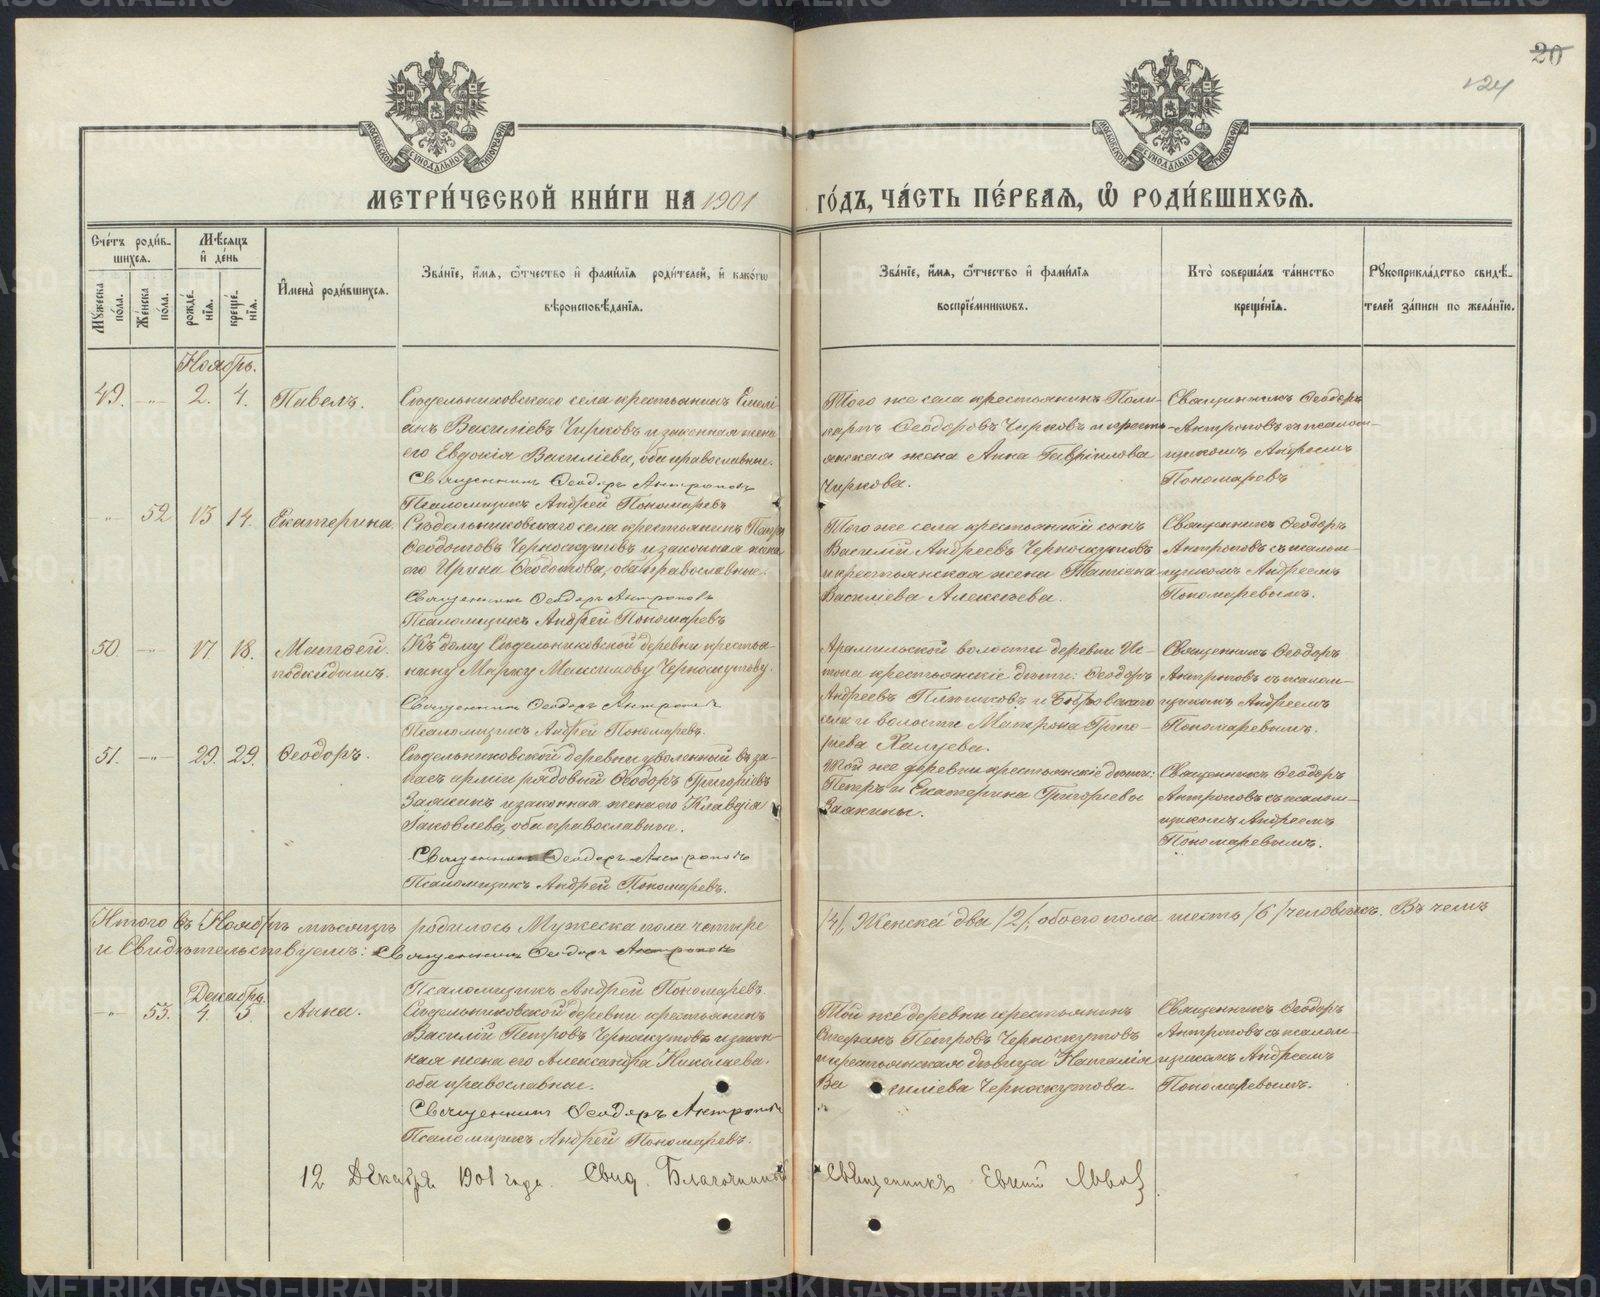 20
124
МОСКОВСКОЙ СѴНОДАЛЬНОЙ ТИПОГРАФІИ
МОСКОВСКОЙ СѴНОДАЛЬНОЙ ТИПОГРАФІИ
МЕТРИ́ЧЕСКОЙ КНИ́ГИ НА 1901 ГО́ДЪ, ЧА́СТЬ ПЕ́РВАЯ, Ѽ РОДИ́ВШИХСЯ.
Сче́тъ роди́в-
шихся.
Мꙋжеска по́ла.
Же́нска по́ла.
Мѣ́сяцъ
и҆ де́нь
рожде́нїѧ.
креще́нїѧ.
И҆мена̀ роди́вшихся.
Зва́нїе, и҆́мѧ, ѻ҆́тчество и҆ фами́лїѧ роди́телей, и҆ како́гѡ
вѣроисповѣ́данїѧ.
Зва́нїе, и҆́мѧ, ѻ҆́тчество и҆ фами́лїѧ
воспрїе́мникѡвъ.
Кто̀ соверша́лъ та́инство
креще́нїѧ.
Рꙋкоприкла́дство свидѣ́-
телей за́писи по жела́нїю.
Ноябрь.
49. -„- 2. 4. Павелъ.
Сѣдельниковскаго села крестьянинъ Емелі-
анъ Василіевъ Чирковъ и законная жена
его Евдокія Василіева, оба православные.
Священникъ Ѳеодоръ Антроповъ
Псаломщикъ Андрей Пономаревъ
Того же села крестьянинъ Поли-
карпъ Ѳеодоровъ Чирковъ и кресть-
янская жена Анна Гавріилова
Чиркова.
Священникъ Ѳеодоръ
Антроповъ съ псалом-
щикомъ Андреемъ
Пономаревъ
-„- 52 13 14. Екатерина
Сѣдельниковскаго села крестьянинъ Петръ
Ѳеодотовъ Черноскутовъ и законная жена
его Ирина Ѳеодотова, оба православные.
Священникъ Ѳеодоръ Антроповъ
Псаломщикъ Андрей Пономаревъ
Того же села крестьянскій сынъ
Василій Андреевъ Черноскутовъ
и крестьянская жена Татиана
Василіева Алексѣева.
Священникъ Ѳеодоръ
Антроповъ съ псалом-
щикомъ Андреемъ
Пономаревымъ.
50. -„- 17. 18. Матѳей.
подкидышъ.
Къ дому Сѣдельниковской деревни крестья-
нину Марку Максимову Черноскутову.
Священникъ Ѳеодоръ Антроповъ
Псаломщикъ Андрей Пономаревъ.
Арамильской волости деревни Ис-
тока крестьянскіе дѣти: Ѳеодоръ
Андреевъ и Бобровскаго
села и волости Матрона Григо-
ріева
Священникъ Ѳеодоръ
Антроповъ съ псалом-
щикомъ Андреемъ
Пономаревымъ.
51. -„- 29. 29. Ѳеодоръ.
Сѣдельниковской деревни уволенный въ за-
пасъ арміи рядовой Ѳеодоръ Григоріевъ
Заякинъ и законная жена его Клавдія
Іаковлева, оба православные.
Священникъ Ѳеодоръ Антроповъ
Псаломщикъ Андрей Пономаревъ.
Той же деревни крестьянскіе дѣти:
Петръ и Екатерина Григоріевы
Заякины.
Священникъ Ѳеодоръ
Антроповъ съ псалом-
щикомъ Андреемъ
Пономаревымъ.
Итого въ Ноябрѣ мѣсяцѣ родилось Мужеска пола четыре /4/, Женска два /2/, обоего пола шесть /6/ человѣкъ. Въ чемъ
и Свидѣтельствуемъ: Священникъ Ѳеодоръ Антроповъ
Псаломщикъ Андрей Пономаревъ.
Декабрь.
-„- 53. 4. 5 Анна.
Сѣдельниковской деревни крестьянинъ
Василій Петровъ Черноскутовъ и закон-
ная жена его Александра Николаева.
оба православные.
Священникъ Ѳеодоръ Антроповъ
Псаломщикъ Андрей Пономаревъ.
Той же деревни крестьянинъ
Стефанъ Петровъ Черноскутовъ
и крестьянская дѣвица Наталія
Василіева Черноскутова.
Священникъ Ѳеодоръ
Антроповъ съ псалом-
щикомъ Андреемъ
Пономаревымъ.
12 Декабря 1901 года. Свид. Благочинный Священникъ Евгеній
METRIKI.GASO-URAL.RU